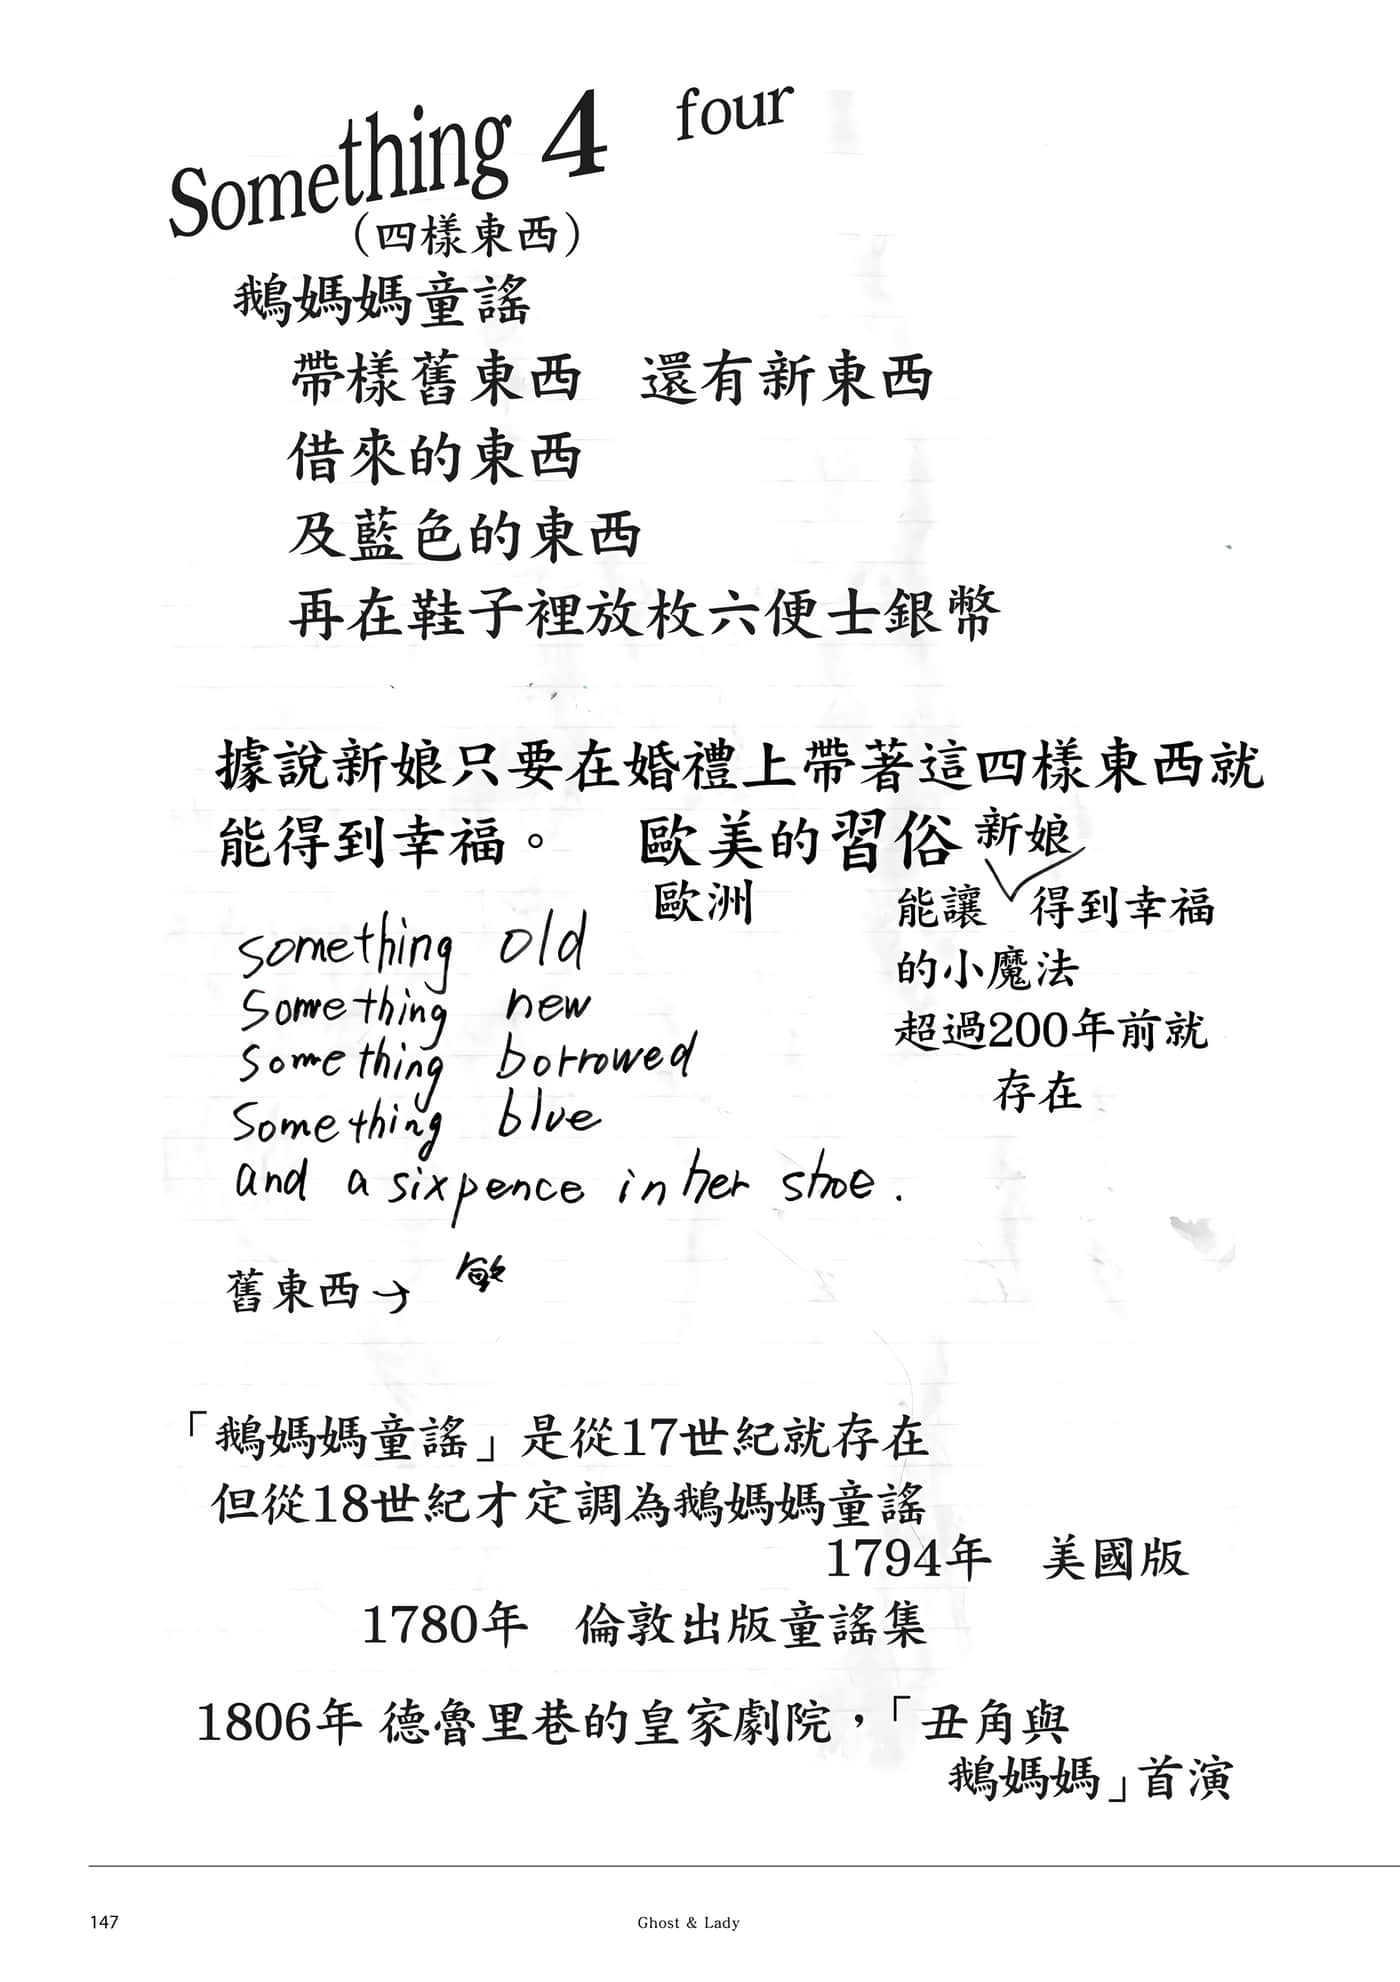 Something 4 four
(四樣東西)
鵝媽媽童謠
帶樣舊東西 還有新東西
借來的東西
及藍色的東西
再在鞋子裡放枚六便士銀幣
據說新娘只要在婚禮上帶著這四樣東西就
能得到幸福。 歐美的習俗
歐洲
新娘
能讓 得到幸福
的小魔法
超過200年前就
存在
something old
something new
something borrowed
something blue
and a sixpence in her shoe.
舊東西→
「鵝媽媽童謠」是從17世紀就存在
但從18世紀才定調為鵝媽媽童謠
1794年 美國版
1780年 倫敦出版童謠集
1806年 德魯里巷的皇家劇院，「丑角與
鵝媽媽」首演
147
Ghost & Lady